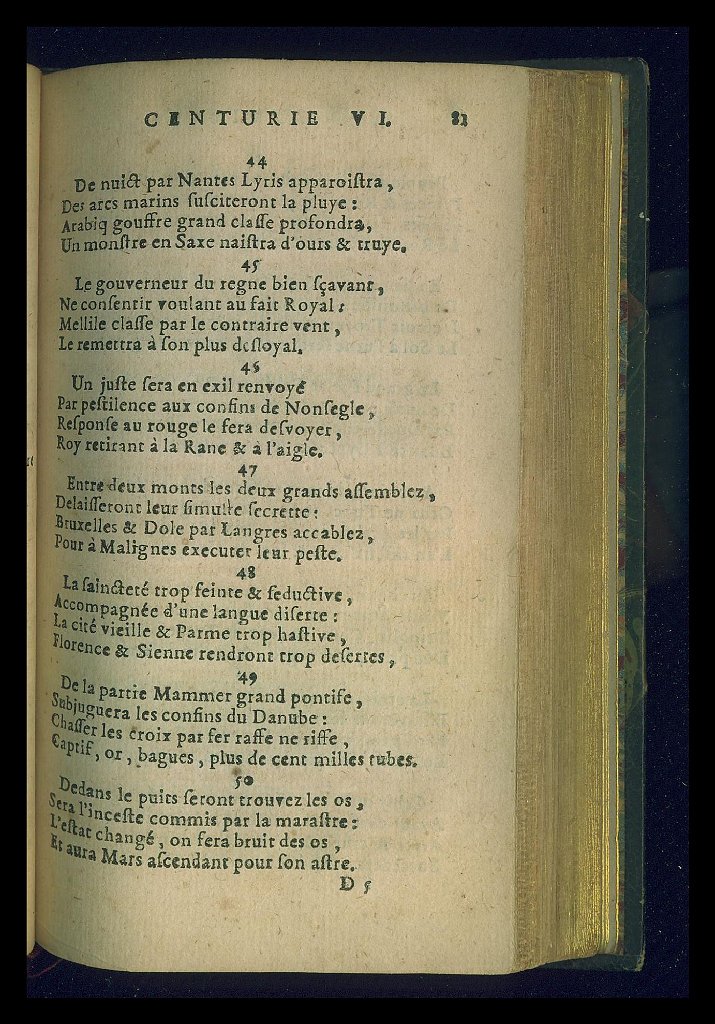 CENTURIE VI. 81
44
De nuict par Nantes Lyris apparoiſtra,
Des arcs marins ſuſciteront la pluye:
Arabiq gouffre grand claſſe profondra,
Un monſtre en Saxe naiſtra d'ours & truye.
45
Le gouverneur du regne bien ſçavant,
Ne conſentir voulant au fait Royal:
Mellile claſſe par le contraire vent,
Le remettra à ſon plus deſloyal.
46
Un juſte ſera en exil renvoyé
Par peſtilence aux confins de Nonſegle,
Reſponſe au rouge le fera deſvoyer,
Roy retirant à la Rane & à l'aigle.
47
Entre deux monts les deux grands aſſemblez,
Delaiſſeront leur ſimulte ſecrette:
Bruxelles & Dole par Langres accablez,
Pour à Malignes executer leur peſte.
48
La ſaincteté trop feinte & ſeductive,
Accompagnée d'une langue diſerte:
La cité vieille & Parme trop haſtive,
Florence & Sienne rendront trop deſertes,
49
De la partie Mammer grand pontife,
Subjuguera les confins du Danube:
Chaſſer les croix par fer raffe ne riffe,
Captif, or, bagues, plus de cent milles tubes.
50
Dedans le puits ſeront trouvez les os,
Sera l'inceſte commis par la maraſtre:
L'eſtat changé, on fera bruit des os,
Et aura Mars aſcendant pour ſon aſtre.
D 5